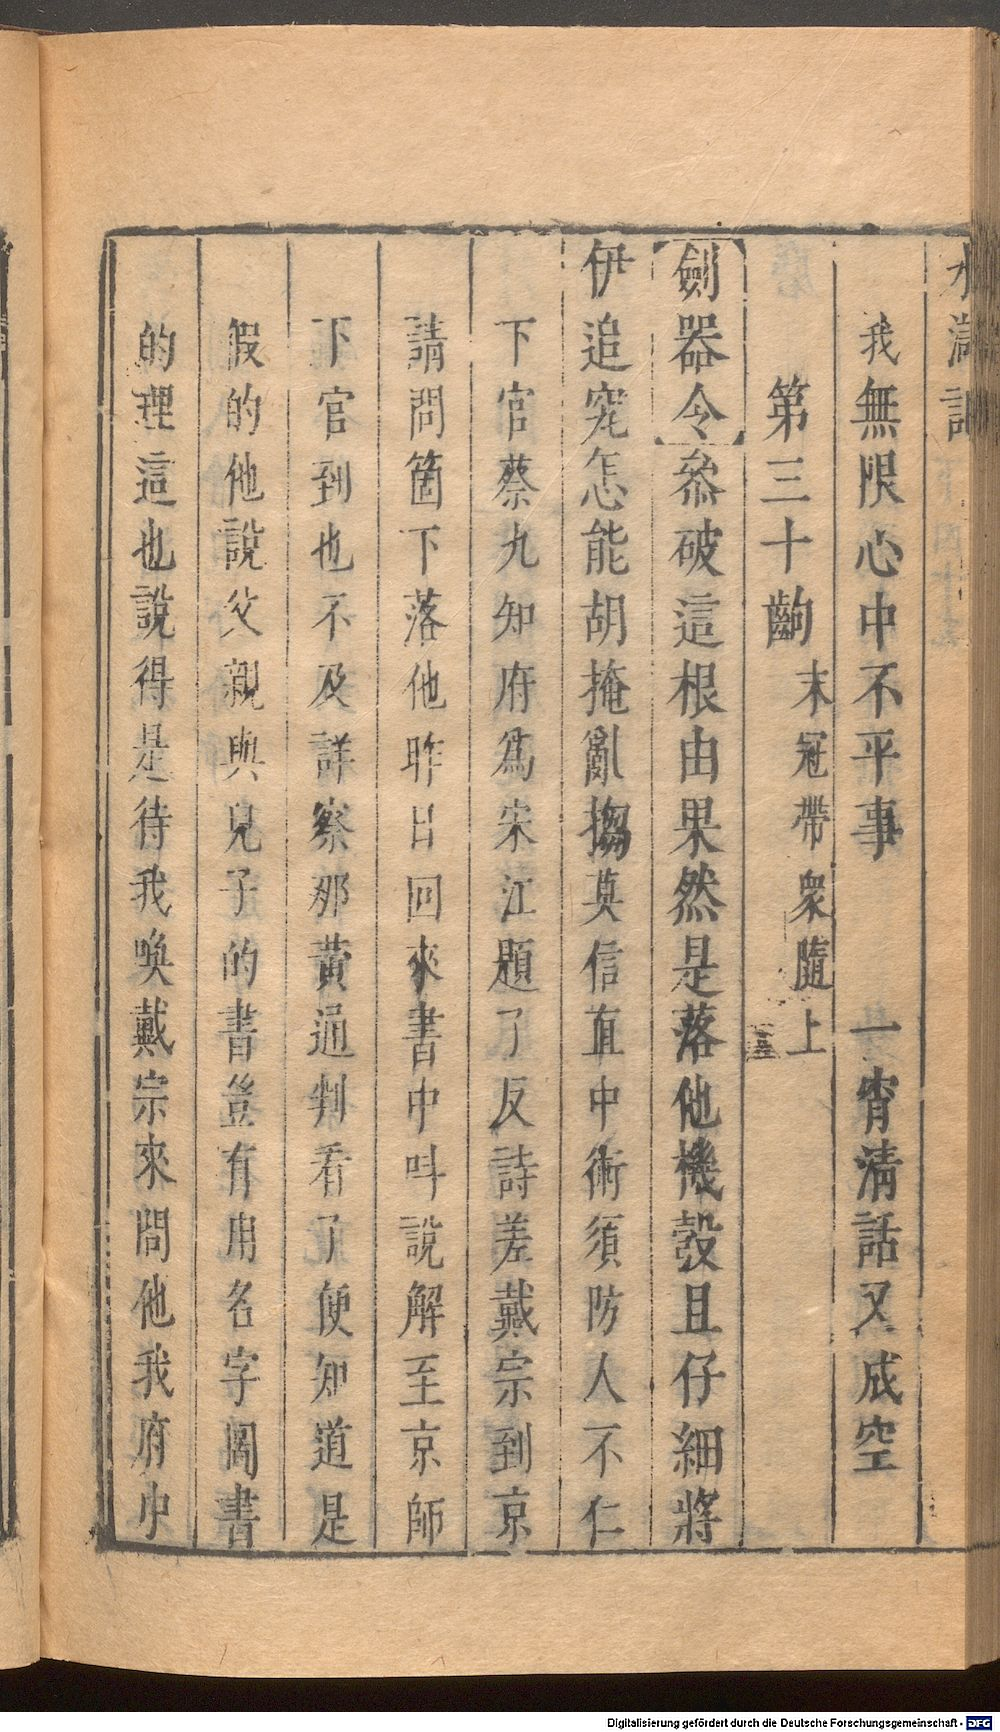 水滸記
我無限心中不平事　一宵淸話又成空
第三十齣　末冠帶衆隨上
劒器令叅破這根由果然是落他機彀且仔細將
伊追究怎能胡掩亂搊莫信直中術須防人不仁
下官蔡九知府爲宋江題了反詩差戴宗到京
請問箇下落他昨日回來書中呌說解至京師
下官到也不及詳察那黃通判看了便知道是
假的他說父親與兒子的書豈有用名字圖書
的理這也說得是待我喚戴宗來問他我府中
Digitalisierung gefördert durch die Deutsche Forschungsgemeinschaft - DFG